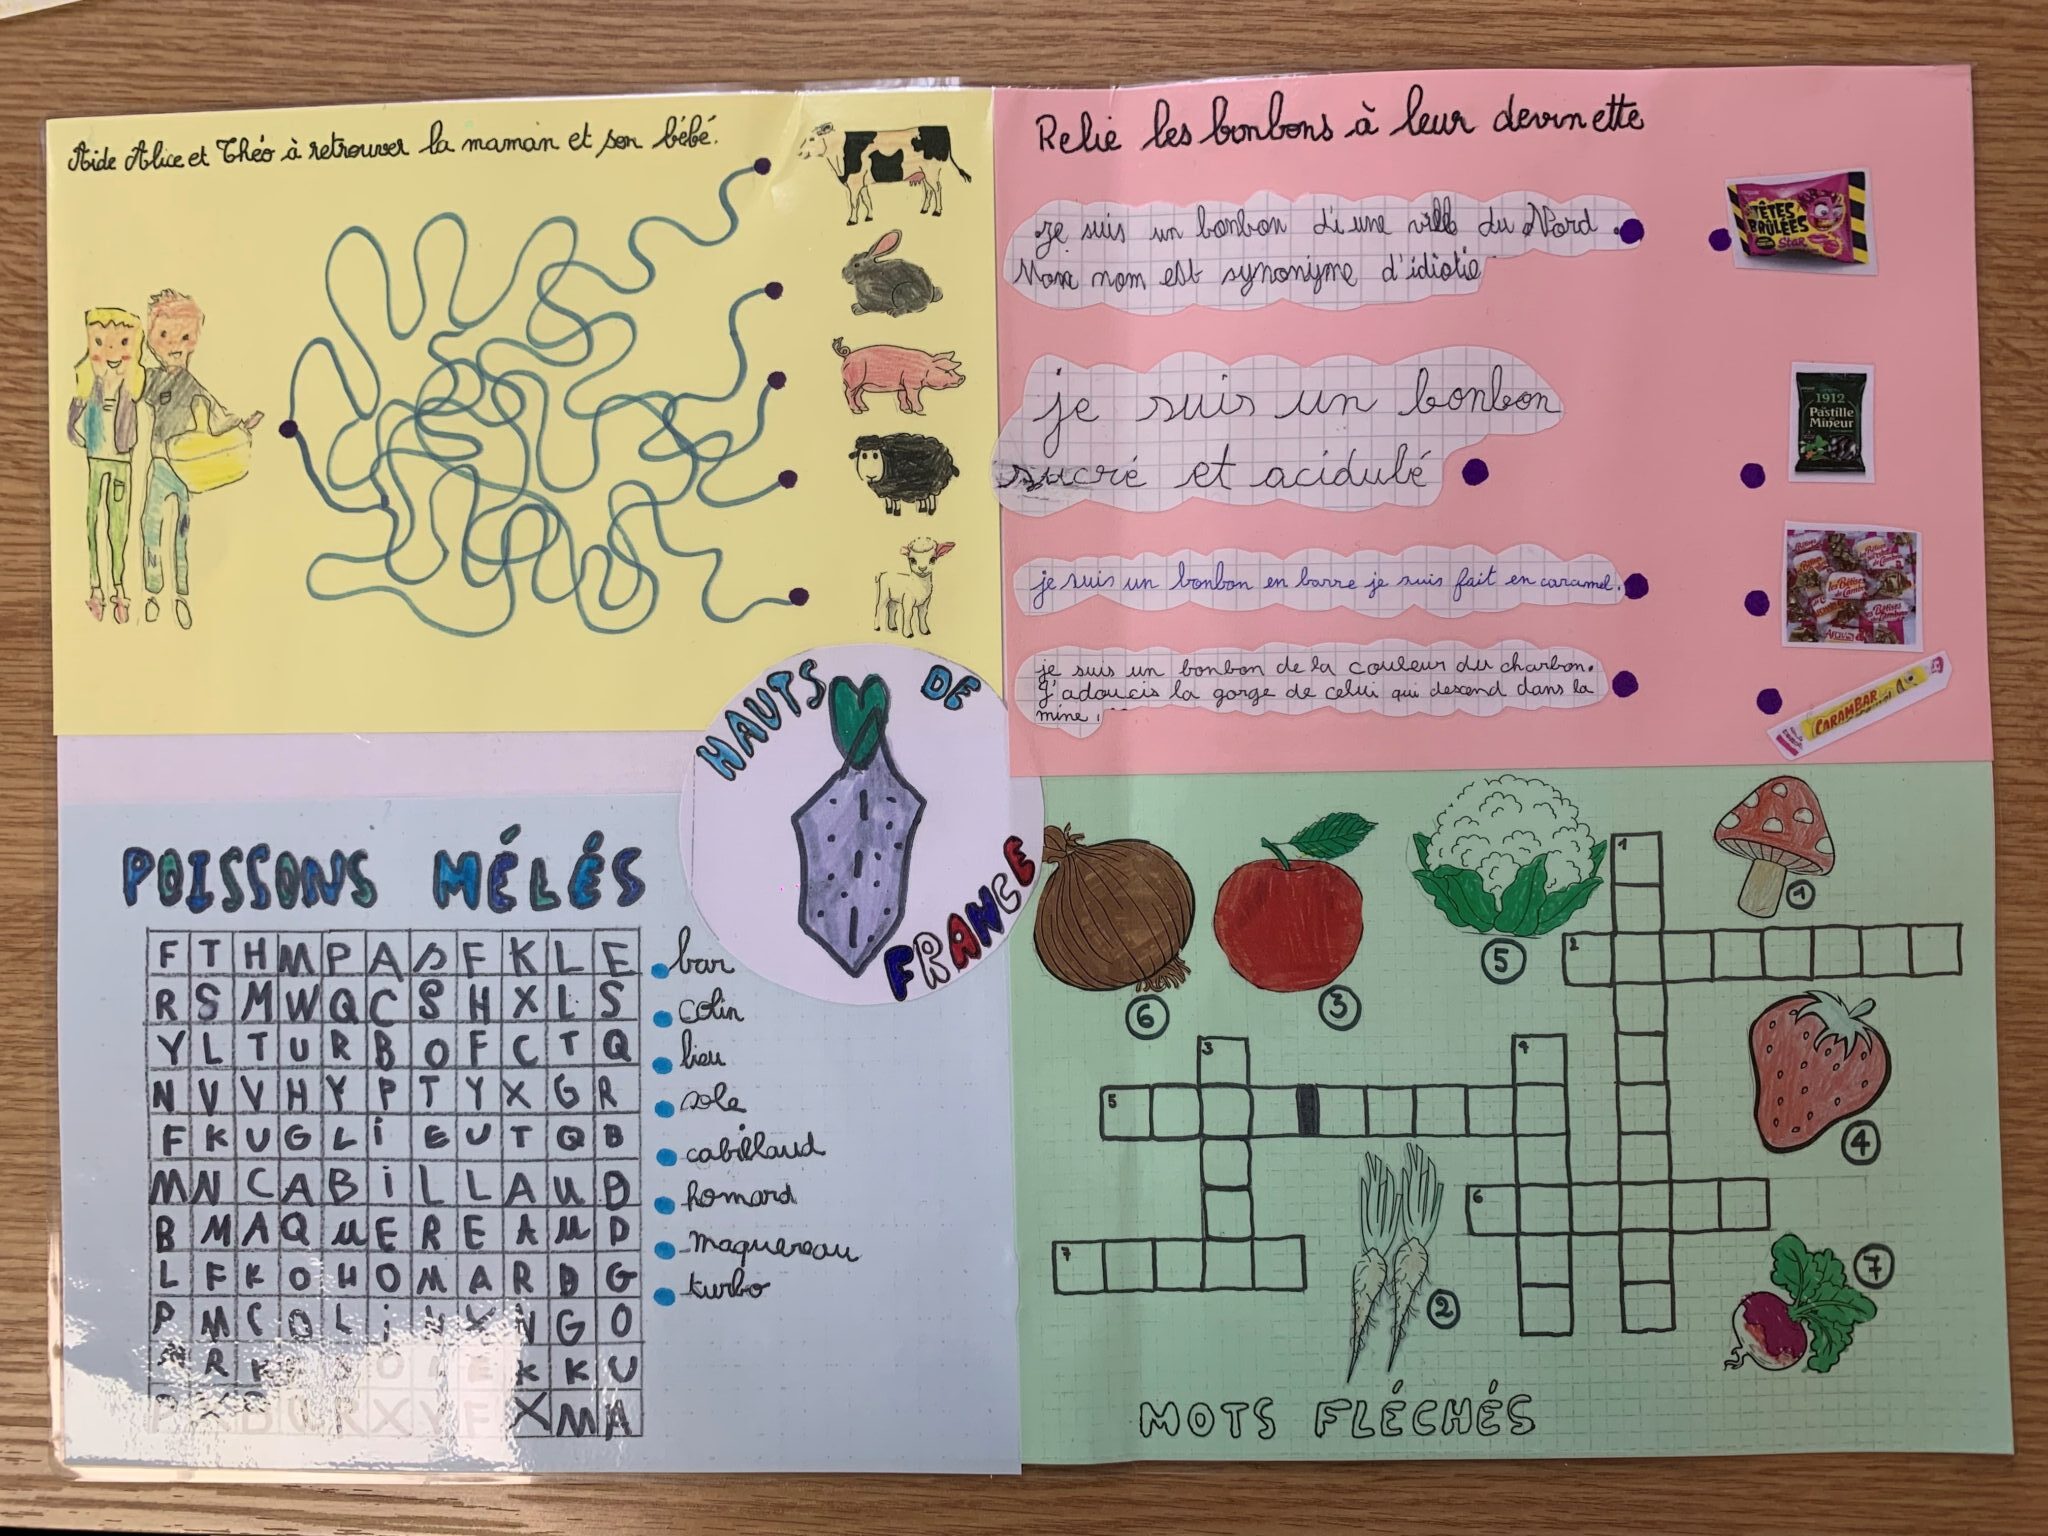 Aide Alice et Théo à retrouver la maman et son bébé.
Relie les bonbons à leur devinette
je suis un bonbon d'une ville du Nord.
Mon nom est synonyme d'idiotie
je suis un bonbon
sucré et acidulé
je suis un bonbon en barre je suis fait en caramel.
je suis un bonbon de la couleur du charbon.
J'adoucis la gorge de celui qui descend dans la
mine.
TÊTES
BRÛLÉES
Star
1912
Pastille
Mineur
Les Bêtises
de Cambrai
CARAMBAR
HAUTS DE
FRANCE
POISSONS MÉLÉS
F T H M P A S F K L E
R S M W Q C S H X L S
Y L T U R B O F C T Q
N V V H Y P T Y X G R
F K U G L i E U T Q B
M N C A B i L L A U D
B M A Q U E R E A U D
L F K O H O M A R D G
P M C O L i N X N G O
R K O L E K K U
X B X M A
bar
colin
lieu
sole
cabillaud
homard
maquereau
turbo
1
1
5
2
6
3
3
4
4
5
6
2
7
7
MOTS FLÉCHÉS